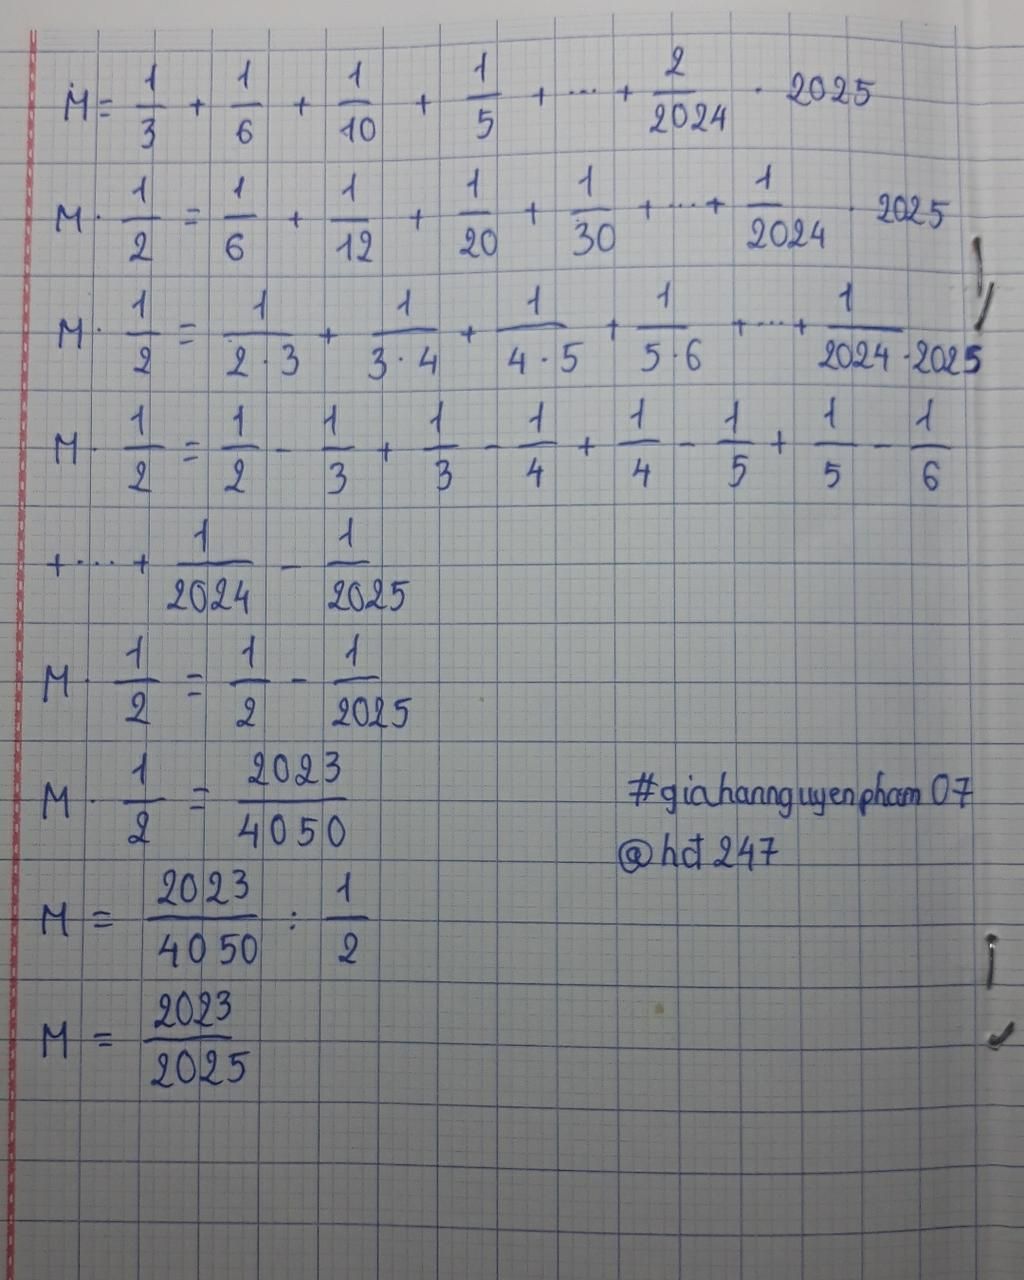 M = 1/3 + 1/6 + 1/10 + 1/5 + ... + 2/2024 · 2025
M · 1/2 = 1/6 + 1/12 + 1/20 + 1/30 + ... + 1/2024 · 2025
M · 1/2 = 1/2·3 + 1/3·4 + 1/4·5 + 1/5·6 + ... + 1/2024·2025
M · 1/2 = 1/2 - 1/3 + 1/3 - 1/4 + 1/4 - 1/5 + 1/5 - 1/6
+ ... + 1/2024 - 1/2025
M · 1/2 = 1/2 - 1/2025
M · 1/2 = 2023/4050
#giahannguyenpham07
@hđ247
M = 2023/4050 : 1/2
M = 2023/2025